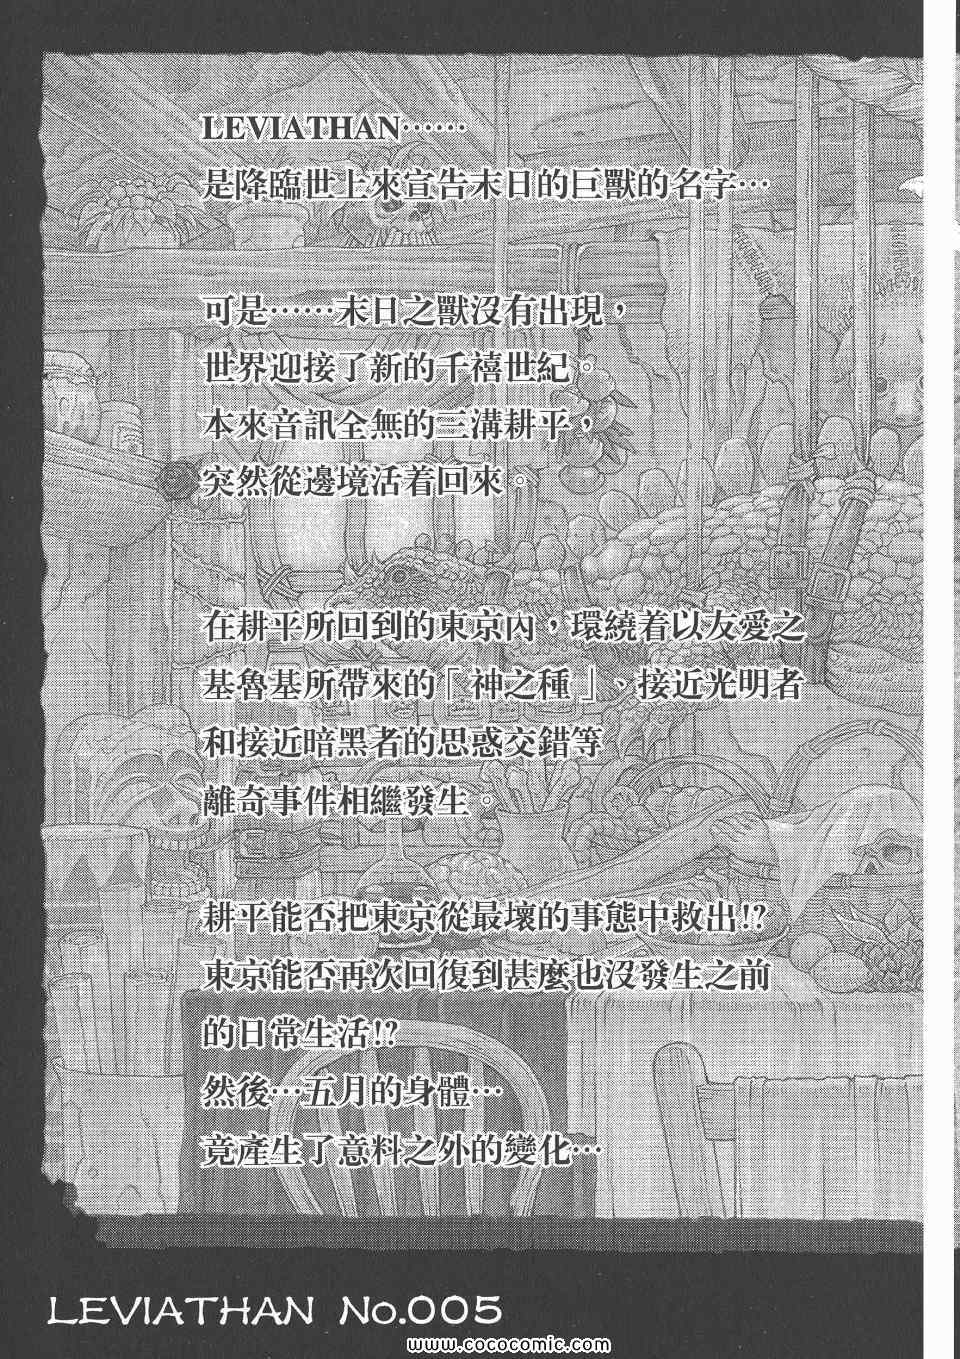 LEVIATHAN……
是降臨世上來宣告末日的巨獸的名字…
可是……末日之獸沒有出現，
世界迎接了新的千禧世紀。
本來音訊全無的三溝耕平，
突然從邊境活着回來。
在耕平所回到的東京內，環繞着以友愛之
基魯基所帶來的「神之種」、接近光明者
和接近暗黑者的思惑交錯等
離奇事件相繼發生。
耕平能否把東京從最壞的事態中救出!?
東京能否再次回復到甚麼也沒發生之前
的日常生活!?
然後…五月的身體…
竟產生了意料之外的變化…
LEVIATHAN No.005
www.cococomic.com